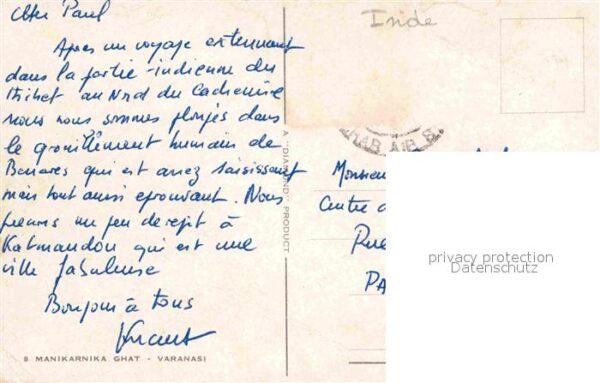 Cher Paul
Après un voyage extennant
dans la partie indienne du
Thibet au Nord du Cachemire
nous nous sommes plongés dans
le grouillement humain de
Benares qui est assez saisissant
mais tout aussi eprouvant. Nous
prenons un peu de repit à
Katmandou qui est une
ville fabuleuse
Bonjour à tous
Vincent
8 MANIKARNIKA GHAT - VARANASI
A "DIAMOND" PRODUCT
Inde
AIR
Monsieur
Centre
Rue
PA
privacy protection
Datenschutz